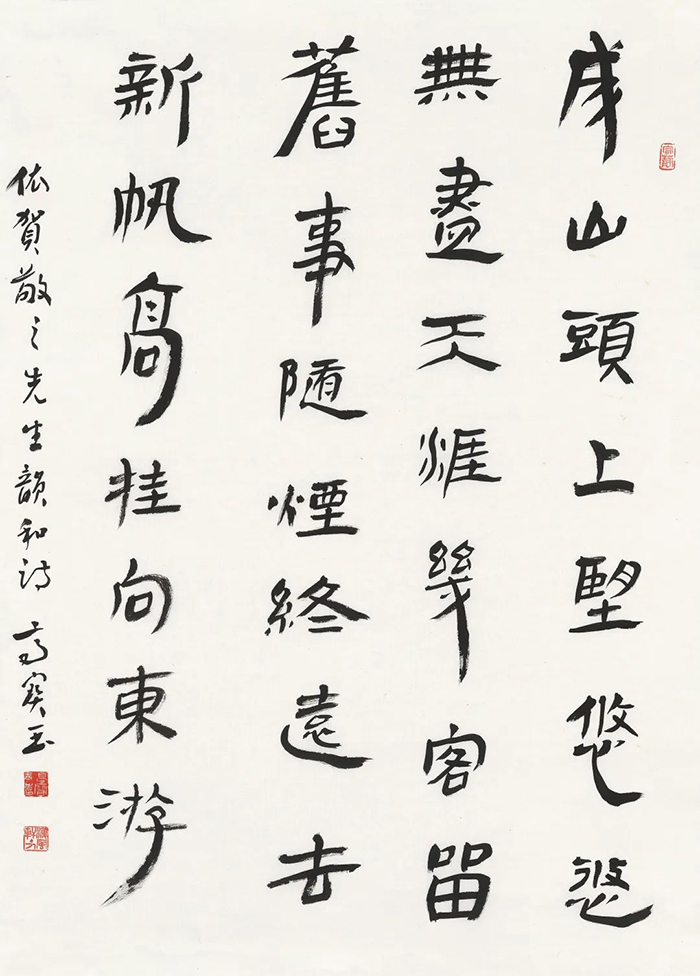 成山頭上望悠悠
無盡天涯幾客留
舊事隨煙終遠去
新帆高挂向東游
依賀敬之先生韻和詩 高寶玉